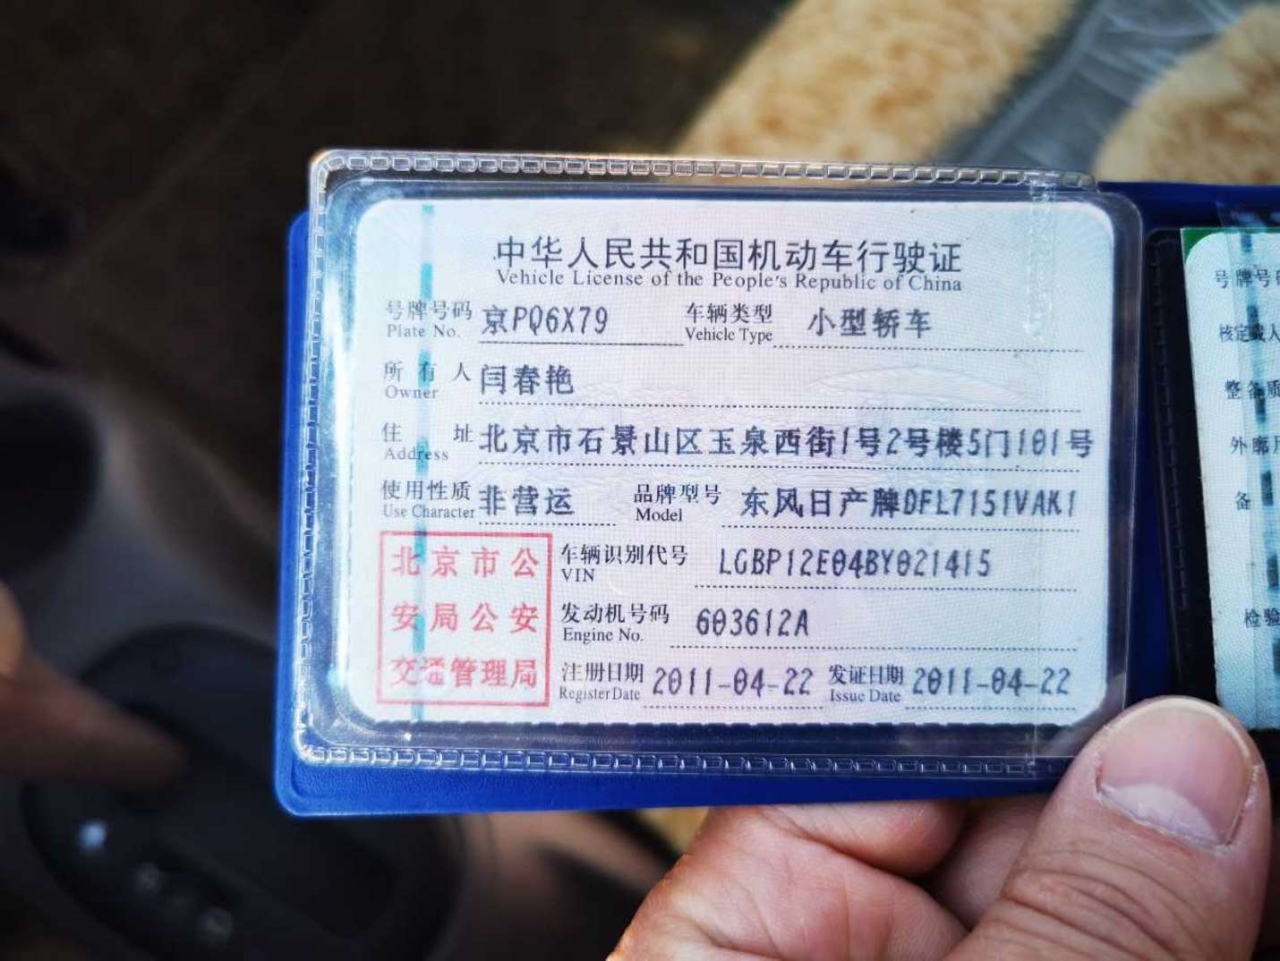 中华人民共和国机动车行驶证
Vehicle License of the People's Republic of China
号牌号码 京PQ6X79 车辆类型 小型轿车
Plate No. Vehicle Type
所有人 闫春艳
Owner
住址 北京市石景山区玉泉西街1号2号楼5门101号
Address
使用性质 非营运 品牌型号 东风日产牌DFL7151VAK1
Use Character Model
北京市公
安局公安
交通管理局
车辆识别代号 LGBP12E04BY021415
VIN
发动机号码 603612A
Engine No.
注册日期 2011-04-22 发证日期 2011-04-22
Register Date Issue Date
号牌号码
核定载人
整备质
外廓
备
检验